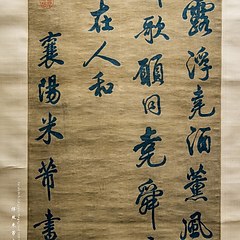 露浮堯酒薰風
歌願同堯舜
在人和
襄陽米芾書